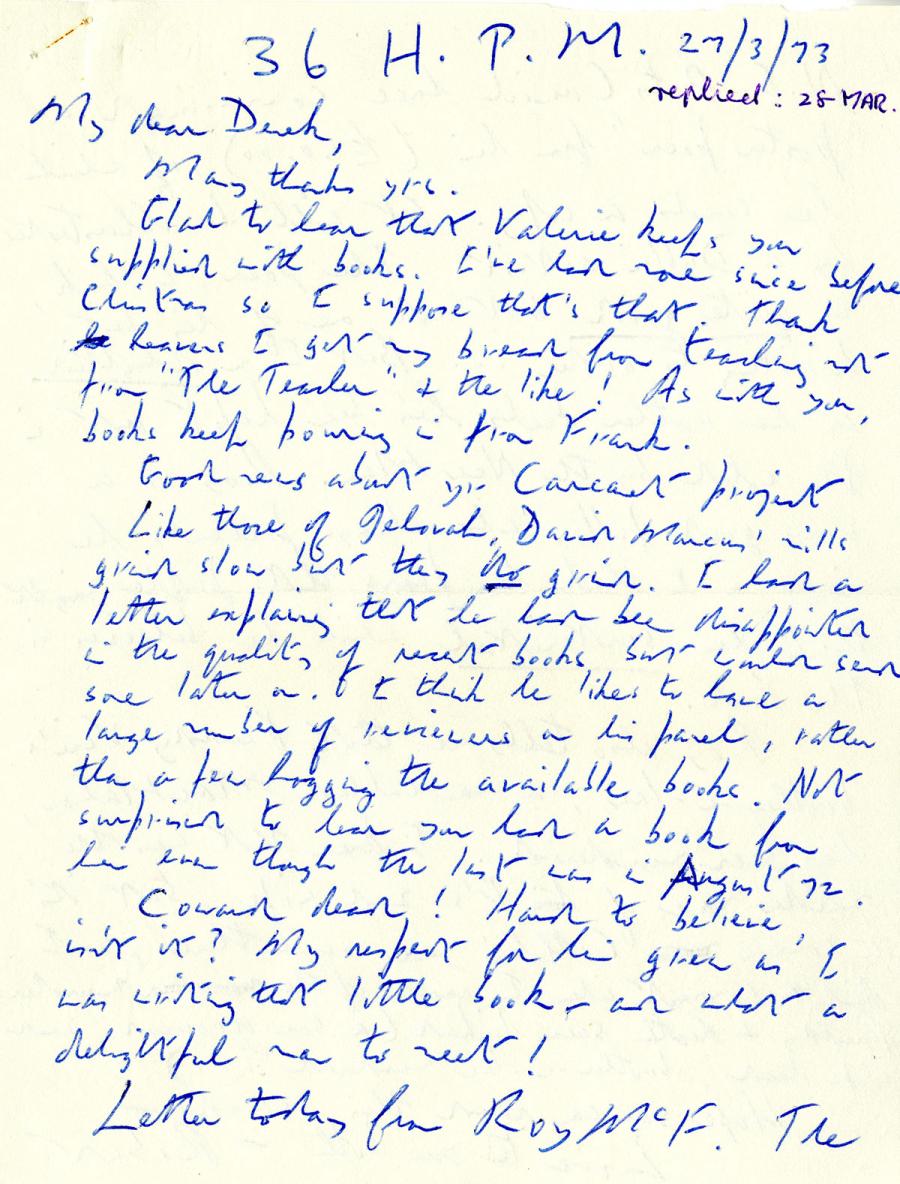 36 H. P. M. 27/3/73
replied: 28 MAR.
My dear Derek,
Many thanks yrs.
Glad to hear that Valerie keeps you
supplied with books. I've had none since before
Christmas so I suppose that's that. Thank
heavens I get my bread from teaching not
from "The Teacher" & the like! As with you,
books keep pouring in from Frank.
Good news about yr Carcanet project
Like those of Jehovah, David Marcus' mills
grind slow but they do grind. I had a
letter explaining that he had been disappointed
in the quality of recent books but would send
some later on. I think he likes to have a
large number of reviewers on his panel, rather
than a few hogging the available books. Not
surprised to hear you had a book from
him even though the last was in August 72.
Coward dead! Hard to believe,
isn't it? My respect for him grew as I
was writing that little book – and what a
delightful man to meet!
Letter today from Roy McF. The